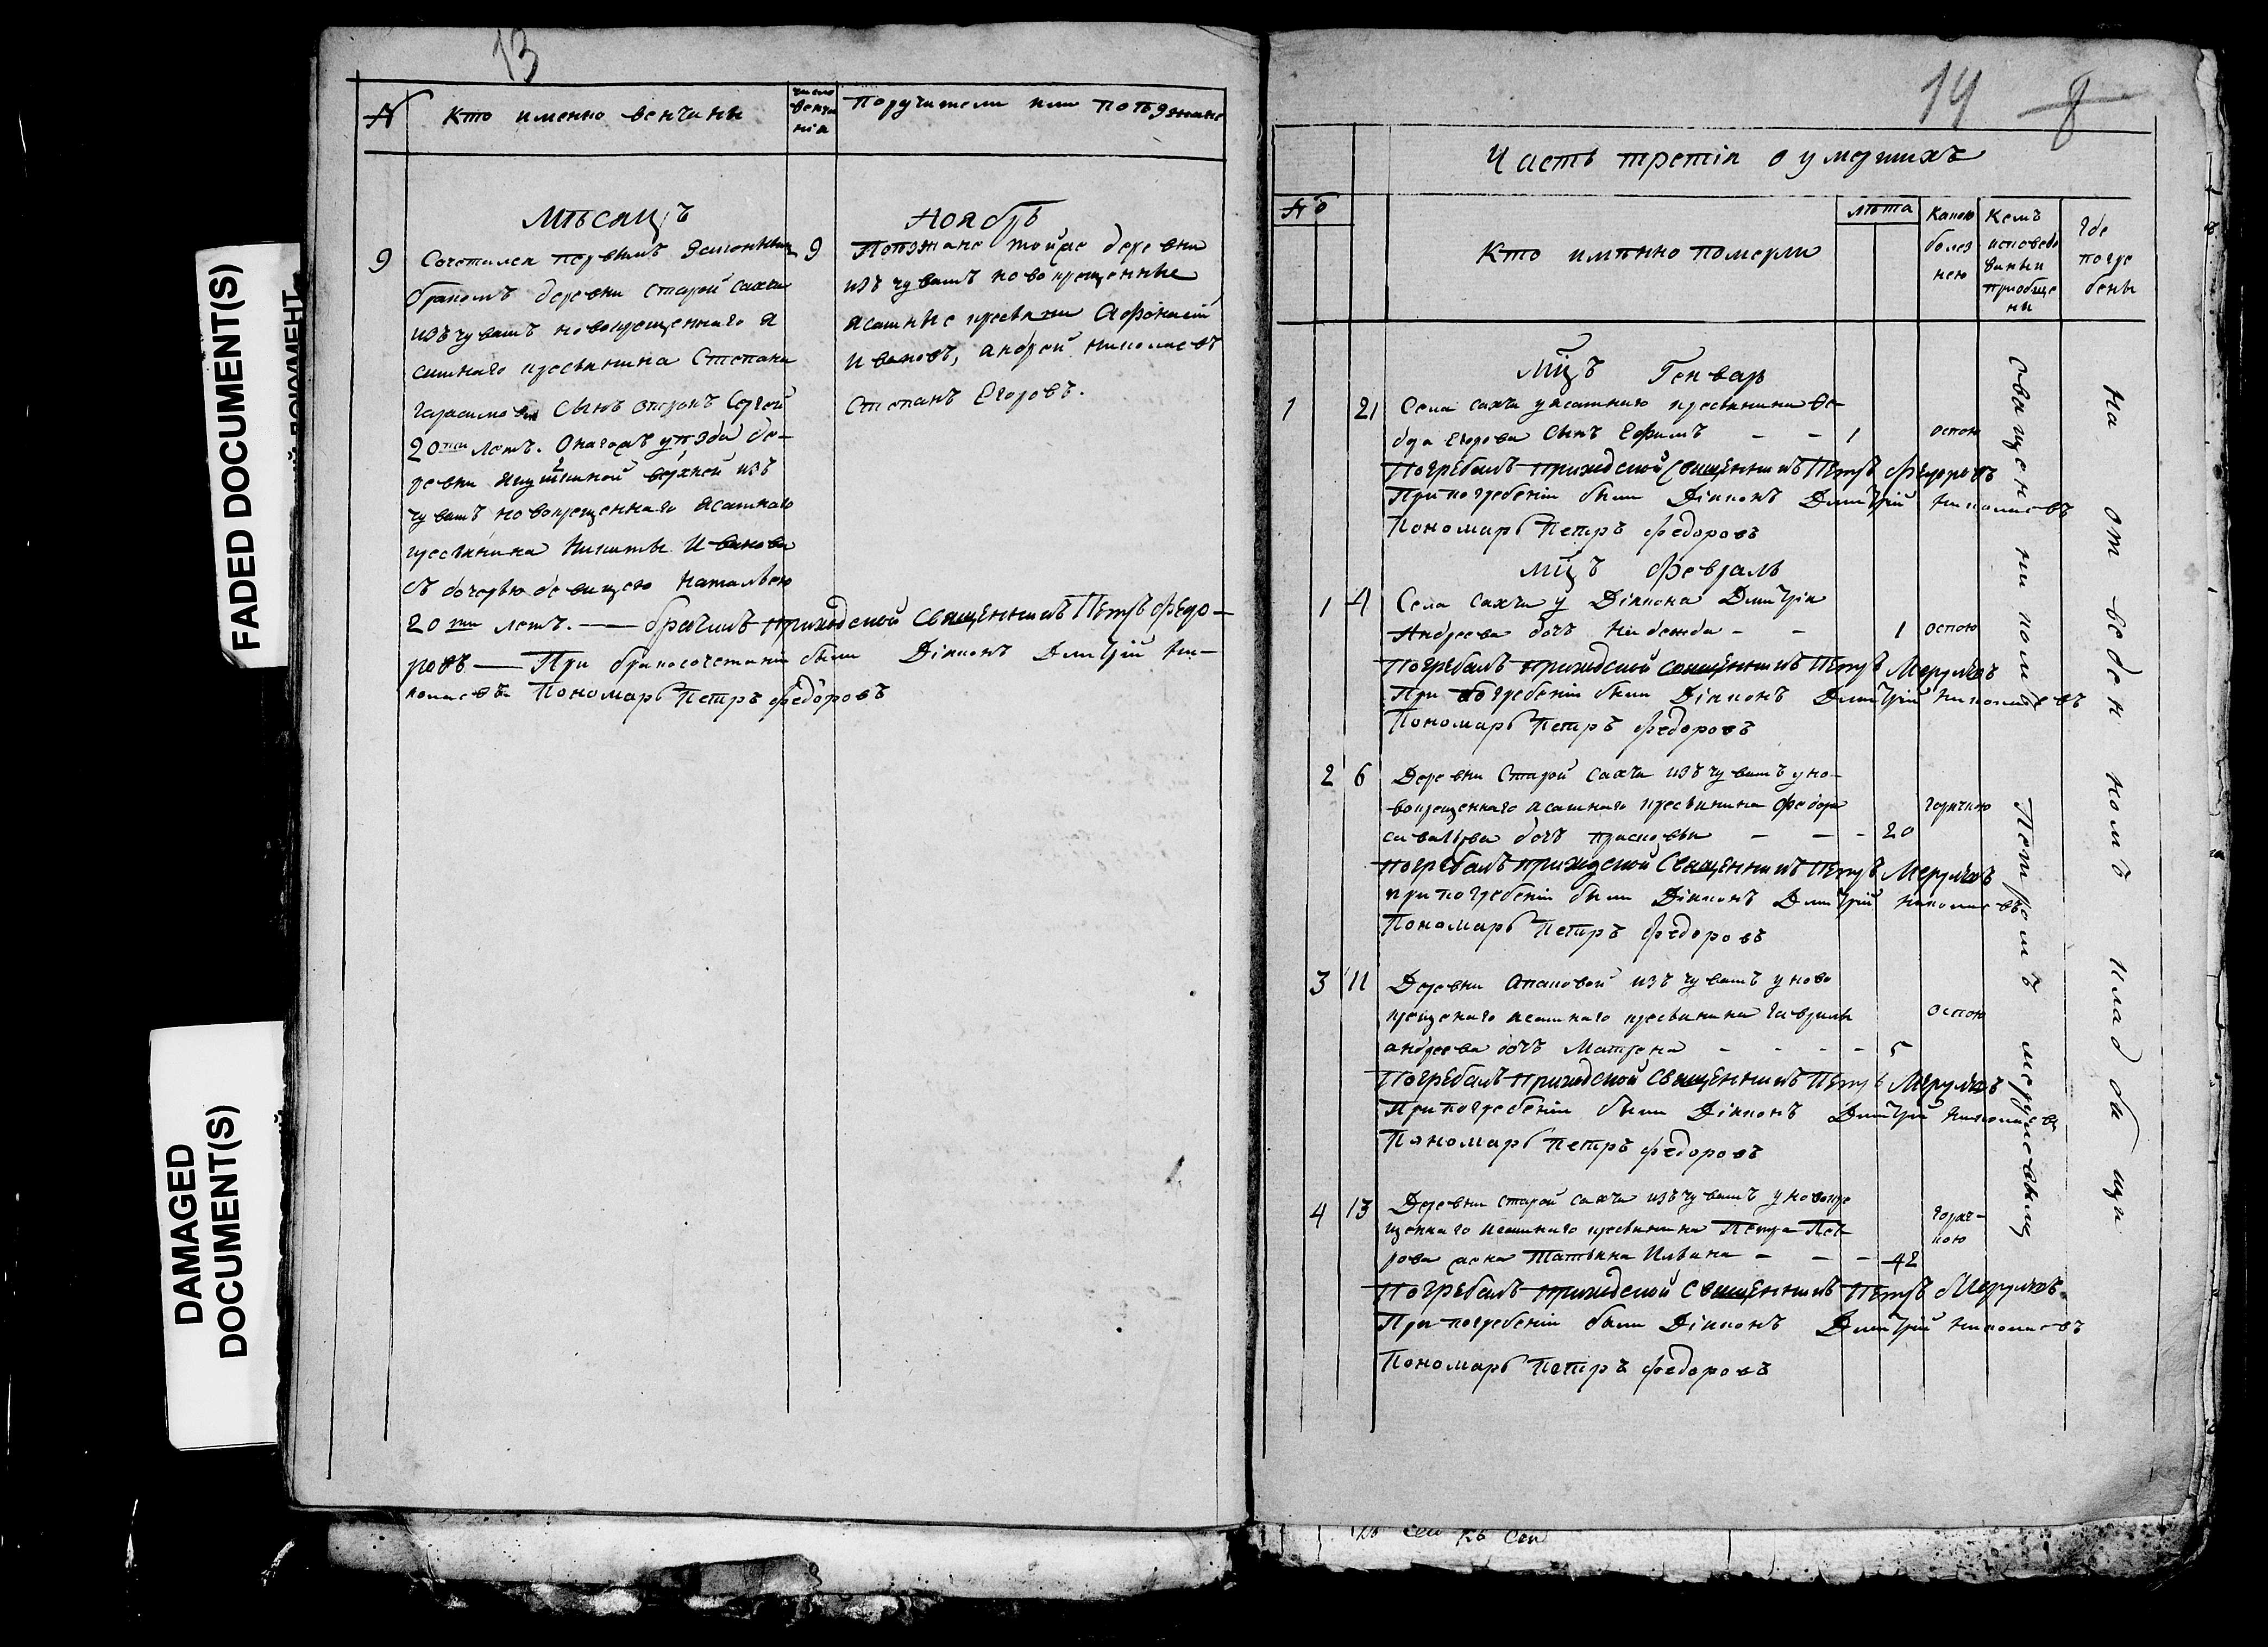 FADED DOCUMENT(S)
DAMAGED
DOCUMENT(S)
13
№
Кто именно венчаны
число
венча
нія
Поручители или поѣзжане
Мѣсяцъ
Ноябрь
9
Сочетался первымъ законнымъ
бракомъ деревни Старой Сахчи
изъ чувашъ новокрещеннаго я
сашнаго кресьянина Степана
Гарасимова сынъ отрокъ Сергей
20ти летъ. Онагожъ уѣзда де-
ревни верхней изъ
чувашъ новокрещеннаго ясашнаго
кресьянина Никиты Иванова
съ дочерью девицею Натальею
20ти летъ. — брачилъ приходской священникъ Петръ Федо-
ровъ — При бракосочетаніи были Діаконъ Дмитрій Ни-
колаевъ Пономарь Петръ Федоровъ
9
Поѣзжане тойже деревни
изъ чувашъ новокрещенные
ясашные кресьяни Афонасій
Ивановъ, Андрей Николаевъ
Степанъ Егоровъ.
14 8
Часть третія о умершихъ
№
Кто имѣнно померли
лѣта
Какою
болез
нею
Кемъ
исповеда
ваны и
приобще
ны
Где
погре
бены
Мцъ Генварь
1 21 Села Сахчи у ясашнаго кресьянина Фе-
дра Егорова сынъ Ефимъ — — 1 оспою
Погребалъ приходской священникъ Петръ Федоровъ
При погребеніи были Діаконъ Дмитрій Николаевъ
Пономарь Петръ Федоровъ
Мцъ Февраль
1 4 Села Сахчи у Діакона Дмитрія
Андреева дочь Надежда — — 1 оспою
Погребалъ приходской священникъ Петръ Меркуловъ
При погребеніи были Діаконъ Дмитрій Николаевъ
Пономарь Петръ Федоровъ
2 6 Деревни Старой Сахчи изъ чувашъ у но-
вокрещеннаго ясашнаго кресьянина Федора
Савельева дочь Прасковья — — - 20 горячкою
Погребалъ приходской Священникъ Петръ Меркуловъ
при погребеніи были Діаконъ Дмитрій Николаевъ
Пономарь Петръ Федоровъ
3 11 Деревни Апаковой изъ чувашъ у ново
крещенаго ясашнаго кресьянина Гаврилы
Андреева дочь Матрена - - - - 5 оспою
Погребалъ приходской священникъ Петръ Меркуловъ
При погребеніи были Діаконъ Дмитрій Николаевъ
Пономарь Петръ Федоровъ
4 13 Деревни Старой Сахчи изъ чувашъ у новокре
щеннаго ясашнаго кресьянина Петра Пет-
рова жена Татьяна Ильина - - - 42 горяч-
кою
Погребалъ приходской священникъ Петръ Меркуловъ.
При погребеніи были Діаконъ Дмитрій Николаевъ
Пономарь Петръ Федоровъ
Священникомъ Петромъ Меркуловымъ
На отведенномъ кладбищи